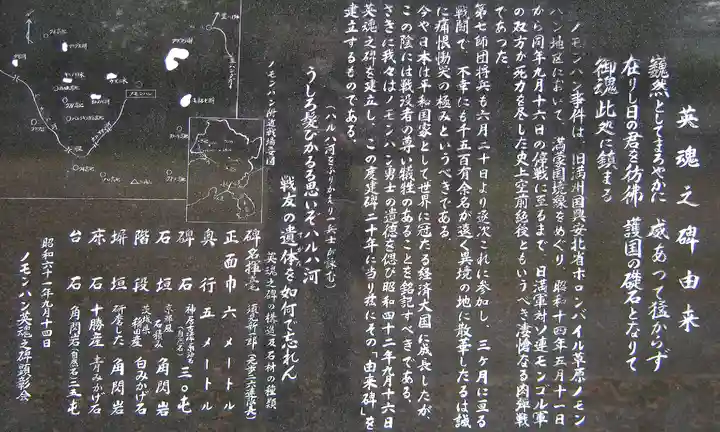 英魂之碑由来
巍然としてまろやかに 威あって猛からず
在りし日の君を彷彿 護国の礎石となりて
御魂此処に鎮まる
ノモンハン事件は、旧満州国興安北省ホロンバイル草原ノモン
ハン地区において、満蒙国境線をめぐり、昭和十四年五月十一日
から同年九月十六日の停戦に至るまで、日満軍対ソ連モンゴル軍
の双方が死力を尽した史上空前絶後ともいうべき凄惨なる肉弾戦
であった。
第七師団将兵も六月二十日より逐次これに参加し、三ヶ月に亘る
戦闘で、不幸にも千五百有余名が遠く異境の地に散華したるは誠
に痛恨慟哭の極みというべきである。
今や日本は平和国家として世界に冠たる経済大国に成長したが、
この陰には戦没者の尊い犠牲のあることを銘記すべきである。
さきに我々はノモンハン勇士の遺徳を偲び昭和四十二年九月十六日
英魂之碑を建立し、この度建碑二十年に当り茲にその「由来碑」を
建立するものである。
うしろ髪ひかるる思いぞハルハ河
戦友の遺体を如何で忘れん
(ハルハ河をふりかえり一兵士が詠む)
ノモンハン附近戦場要図
英魂之碑の構造及石材の種類
碑名揮毫
正面巾 六メートル
奥行 五メートル
碑石 三〇屯
石垣 角閃岩
階段 茨城県稲田産 白みかげ石
塀垣 研磨した角閃岩
床石 十勝産 青みかげ石
台石 角閃岩(自然石)二五屯
昭和六十一年九月十四日
ノモンハン英魂之碑顕彰会
ノモンハン